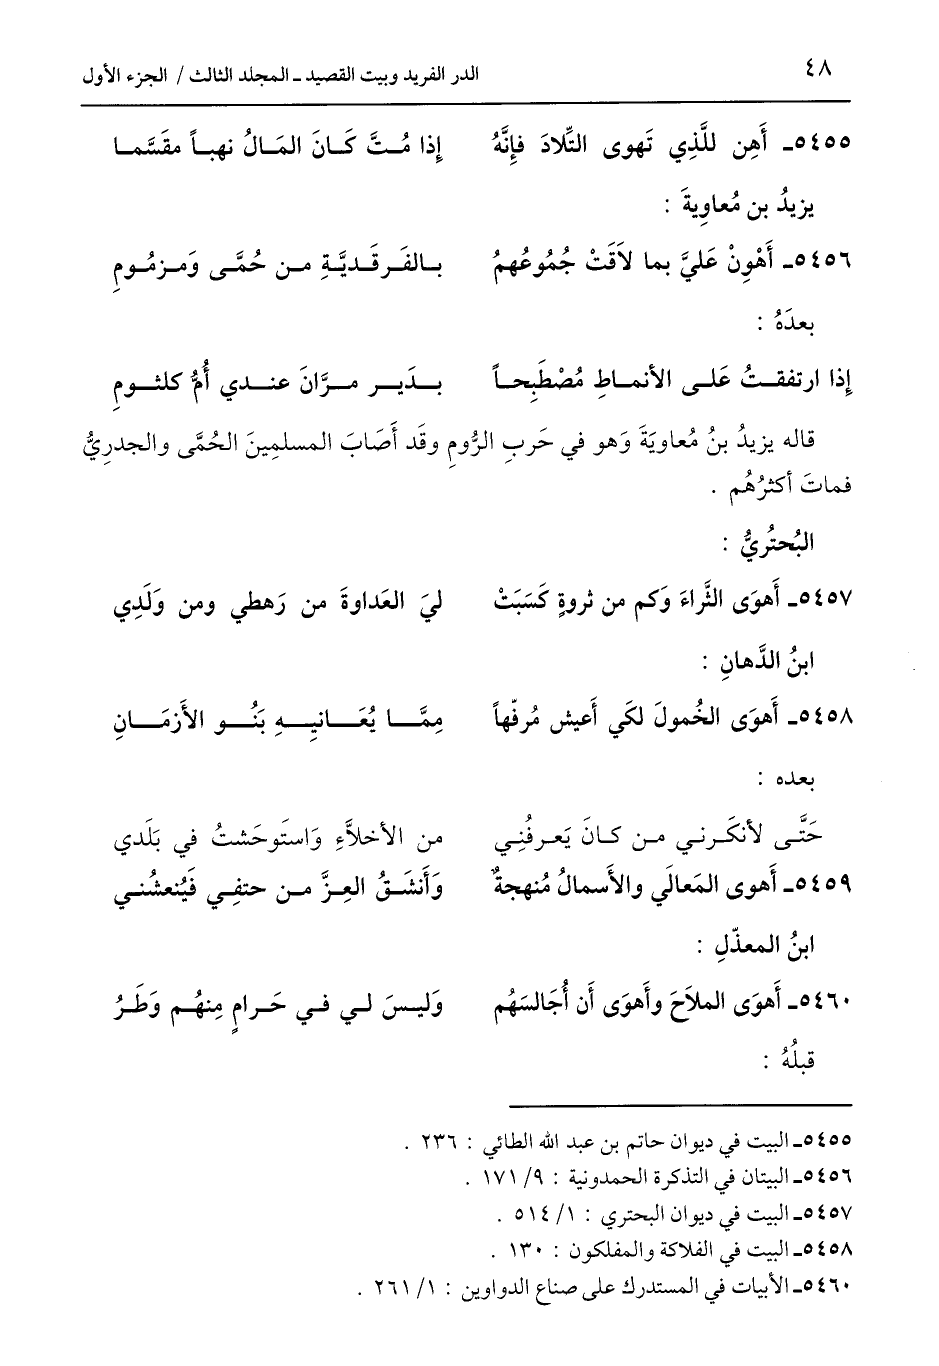 ٤٨ الدر الفريد وبيت القصيد ـ المجلد الثالث / الجزء الأول
٥٤٥٥ـ أَهِن للَّذِي تَهوى التِّلادَ فإِنَّهُ إِذا مُـتَّ كَـانَ المَـالُ نهبـاً مقَسَّمـا
يزيدُ بن مُعاوِيةَ :
٥٤٥٦ـ أَهْوِنْ عَليَّ بما لاَقَتْ جُمُوعُهمُ بـالفَـرقَـديَّـةِ مـن حُمَّى وَمـزمُـومِ
بعدَهُ :
إذا ارتفقـتُ عَلـى الأنمـاطِ مُصْطَبِحـاً بـدَيـر مـرَّانَ عنـدي أُمُّ كلثـومِ
قاله يزيدُ بنُ مُعاويَةَ وَهو في حَربِ الرُّومِ وقَد أَصَابَ المسلمِينَ الحُمَّى والجدرِيُّ
فماتَ أكثرُهُم .
البُحتُريُّ :
٥٤٥٧ـ أَهوَى الثَّراءَ وَكم من ثروةٍ كَسَبَتْ ليَ العَداوةَ من رَهطي ومن وَلَدِي
ابنُ الدَّهانِ :
٥٤٥٨ـ أَهوَى الخُمولَ لكَي أَعيش مُرفّهاً مِمَّـا يُعَـانِيـهِ بَنُـو الأَزمَـانِ
بعده :
حَتَّـى لأنكَـرني مـن كـانَ يَعـرفُنِي من الأخلاَّءِ وَاستَوحَشتُ في بَلَدي
٥٤٥٩ـ أهوى المَعالَي والأسمالُ مُنهجةٌ وَأَنشَـقُ العِـزَّ مـن حتفِـي فَيُنعشُنـي
ابنُ المعذّلِ :
٥٤٦٠ـ أَهوَى الملاَحَ وأَهوَى أن أُجَالسَهُم وَليسَ لـي فـي حَـرامٍ مِنهُـم وَطَـرُ
قبلُهُ :
٥٤٥٥ـ البيت في ديوان حاتم بن عبد الله الطائي : ٢٣٦ .
٥٤٥٦ـ البيتان في التذكرة الحمدونية : ٩/ ١٧١ .
٥٤٥٧ـ البيت في ديوان البحتري : ١/ ٥١٤ .
٥٤٥٨ـ البيت في الفلاكة والمفلكون : ١٣٠ .
٥٤٦٠ـ الأبيات في المستدرك على صناع الدواوين : ١/ ٢٦١ .